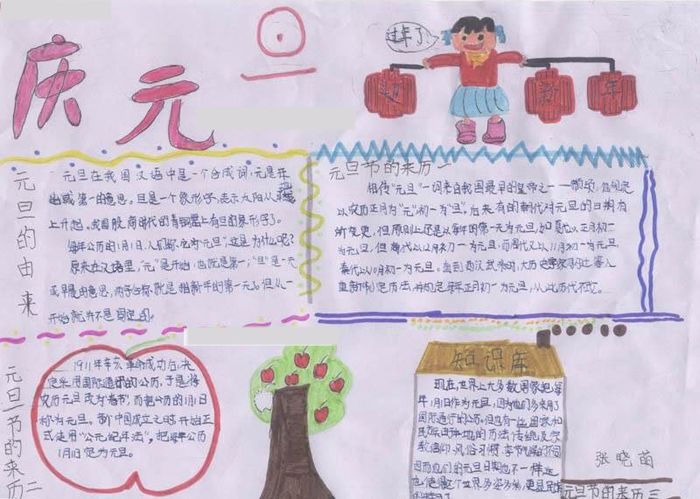 庆元旦
过年了
迎新年
元旦的由来
元旦在我国汉语中是一个合成词,元是开
始或第一的意思。旦是一个象形字,表示太阳从
上升起。我国殷商时代的青铜器上有旦的象形字了。
每年公历的1月1日,人们称之为"元旦",这是为什么呢?
原来在汉语里,"元"是开始,也就是第一;"旦"是一天
或早晨的意思,两字合称,就是指新年的第一天。但从一
开始就并不是固定的。
元旦节的来历一
相传"元旦"一词来自我国最早的皇帝之一——颛顼,他规定
以农历正月为"元"初一为"旦",后来有的朝代对元旦的日期有
所变更,但原则上还是以每年的第一天为元旦,如夏代以正月初一
为元旦,但商代以12月初一为元旦,而周代又以11月初一为元旦,
秦代以10月初一为元旦。直到西汉武帝时,大历史学家司马迁等人
重新制定历法,并规定每年正月初一为元旦,从此历代不改。
元旦节的来历二
1911年辛亥革命成功后,决
定采用国际通用的公历,于是将
农历元旦改为春节,而把公历的1月1日
称为元旦。新中国成立之时,开始正
式使用"公元纪年法",把每年公历
1月1日定为元旦。
知识库
现在世界上大多数国家把每
年1月1日作为元旦,因为他们多采用了
国际通行的公历。但也有一些国家和
民族由于本地的历法传统及宗
教信仰、风俗习惯、季节气候的不同
因而他们的元旦日期也不一样
张晓苗
元旦节的来历三